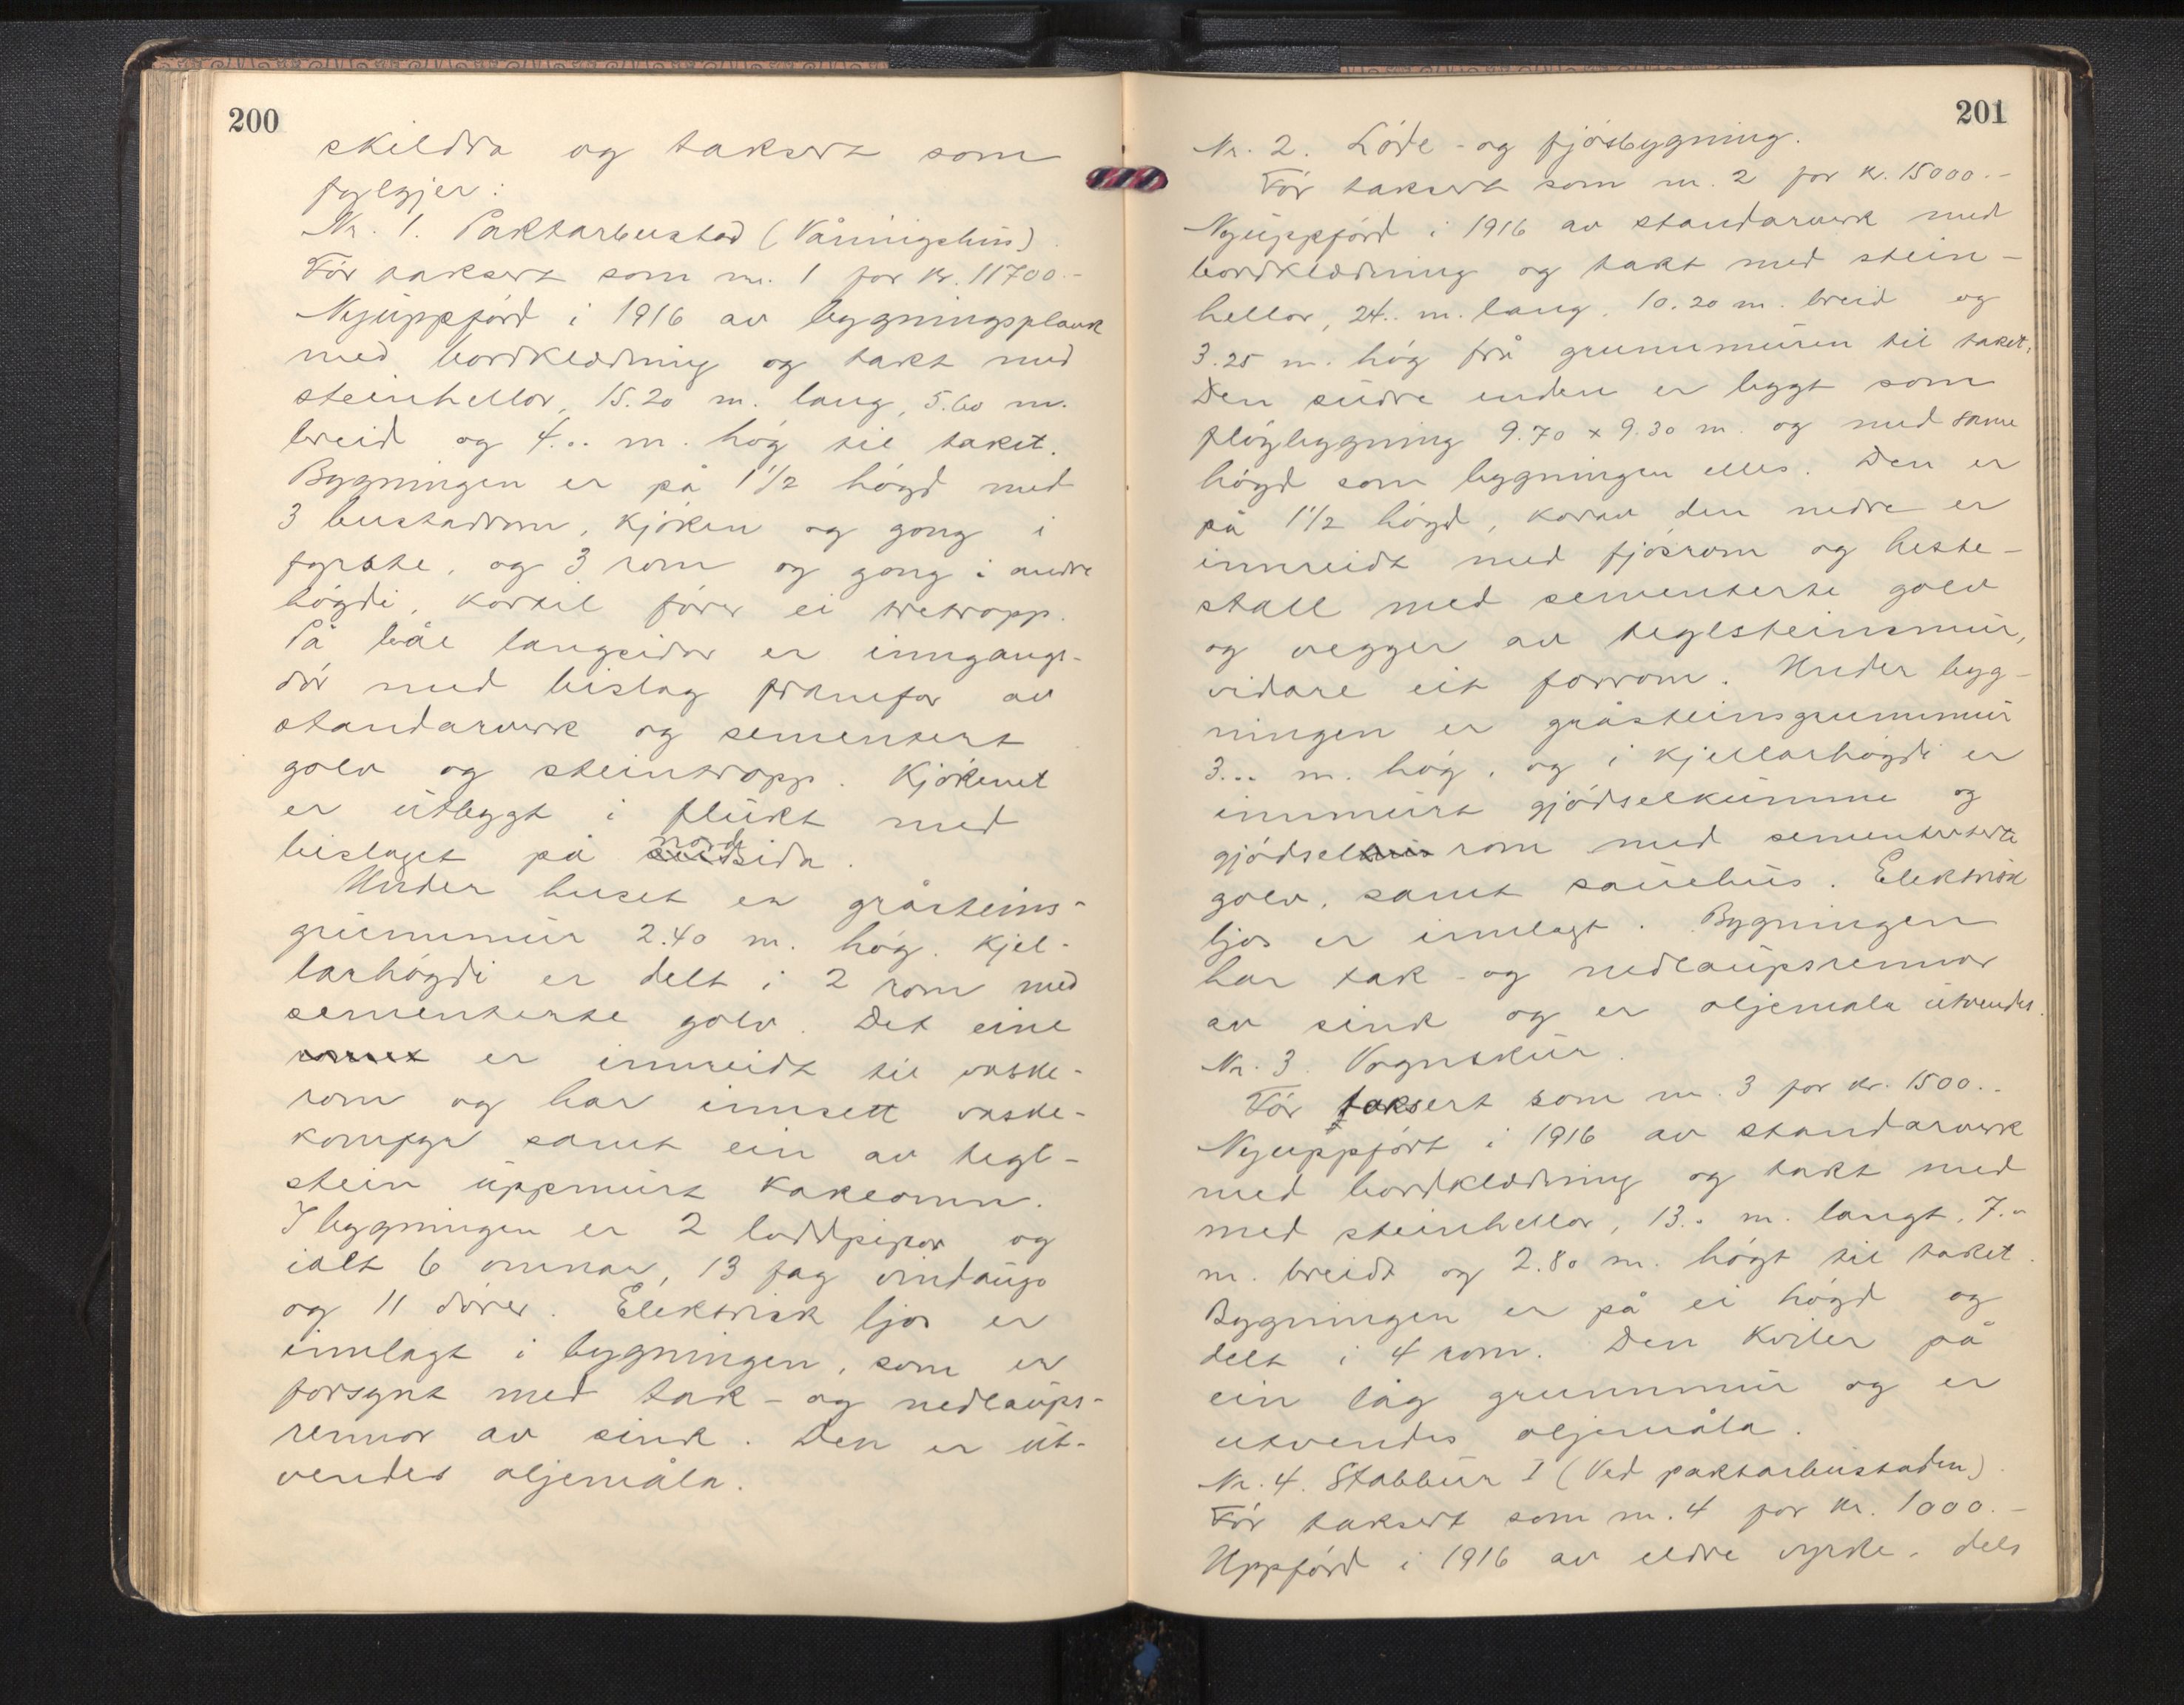 200
skildra og taksert som
fylgjer:
Nr. 1. Paktarbustad (Våningshus).
Før taksert som nr. 1 for kr. 11700.-
Nyuppførd i 1916 av bygningsplank
med bordklædning og takt med
steinhellor, 15.20 m. lang, 5.60 m.
breid og 4.00 m. høg til taket.
Bygningen er på 1 1/2 høgd med
3 bustadrom, kjøken og gong i
fyrste, og 3 rom og gong i andre
høgdi, kortil fører ei tretropp.
På båe langsidor er inngangs-
dør med bislag framfor av
standarverk og sementert
golv og steintropp. Kjøkenet
er utbygt i flukt med
bislaget på nordsida.
Under huset er gråsteins-
grunnmur 2.40 m. høg. Kjel-
larhøgdi er delt i 2 rom med
sementerte golv. Det eine
romet er innreidt til vaske-
rom og har innsett vaske-
komfyr samt ein av tegl-
stein uppmurt kakeomn.
I bygningen er 2 loddpipor og
ialt 6 omnar, 13 fag vindaugo
og 11 dører. Elektrisk ljos er
innlagt i bygningen, som er
forsynt med tak- og nedlaups-
rennor av sink. Den er ut-
vendes oljemåla.
201
Nr. 2. Løde- og fjøsbygning.
Før taksert som nr. 2 for kr. 15000.-
Nyuppførd i 1916 av standarverk med
bordklædning og takt med stein-
hellor, 24.. m. lang, 10.20 m. breid og
3.25 m. høg frå grunnmuren til taket.
Den sudre enden er bygt som
fløybygning 9.70 x 9.30 m. og med same
høgd som bygningen elles. Den er
på 1 1/2 høgd, korav den nedre er
innreidt med fjøsrom og heste-
stall med sementerte golv
og vegger av teglsteinsmur,
vidare eit forrom. Under byg-
ningen er gråsteinsgrunnmur
3... m. høg, og i kjellarhøgdi er
innmurt gjødselkumme og
gjødselhus rom med sementerte
golv, samt sauehus. Elektrisk
ljos er innlagt. Bygningen
har tak- og nedlaupsrennor
av sink og er oljemåla utvendes.
Nr. 3. Vognskur.
Før taksert som nr. 3 for kr. 1500..
Nyuppført i 1916 av standarverk
med bordklædning og takt med
med steinhellor, 13.. m. langt, 7..
m. breidt og 2.80 m. høgt til taket.
Bygningen er på ei høgd og
delt i 4 rom. Den kviler på
ein låg grunnmur og er
utvendes oljemåla.
Nr. 4. Stabbur I (Ved paktarbustaden).
Før taksert som nr. 4 for kr. 1000.-
Uppførd i 1916 av eldre vyrke, dels